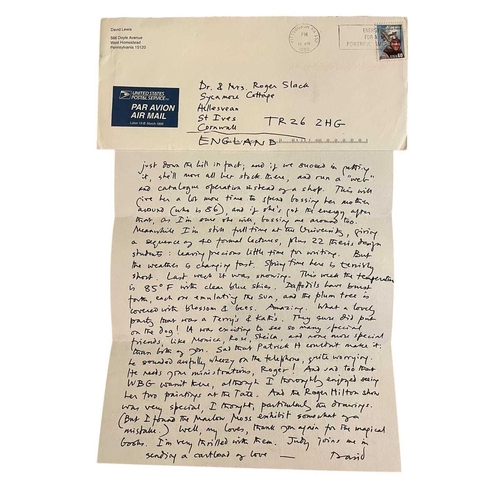 David Lewis
588 Doyle Avenue
West Homestead
Pennsylvania 15120
PM
60
UNITED STATES
POSTAL SERVICE
PAR AVION
AIR MAIL
Dr. & Mrs. Roger Slack
Sycamore Cottage
St Ives
TR26 2HG
Cornwall
ENGLAND
just down the hill in fact; and if we succeed in getting
it, she'll move all her stock there, and run a "web"
and catalogue operation instead of a shop. This will
give her a lot more time to spend bossing her mother
around (who is 86), and if she's got the energy after
that, as I'm sure she will, bossing me around too.
Meanwhile I'm still full time at the University, giving
a sequence of 40 formal lectures, plus 22 thesis design
students: leaving precious little time for writing. But
the weather is changing fast. Spring time here is terribly
short. Last week it was snowing. This week the temperature
is 85°F with clear blue skies. Daffodils have burst
forth, each one emulating the sun, and the plum tree is
covered with blossom & bees. Amazing. What a lovely
party that was a Terry's & Kate's. They sure did put
on the dog! It was exciting to see so many special
friends, like Monica, Rose, Sheila, and none more special
than both of you. Sad that Patrick H couldn't make it:
he sounded awfully wheezy on the telephone, quite worrying.
He needs your ministrations, Roger! And sad too that
WBG wasn't there, although I thoroughly enjoyed seeing
her two paintings at the Tate. And the Roger Hilton show
was very special, I thought, particularly the drawings.
(But I found the Marlow Moss exhibit somewhat of a
mistake.) Well, my loves, thank you again for the magical
books. I'm very thrilled with them. Judy joins me in
sending a cartload of love —
David